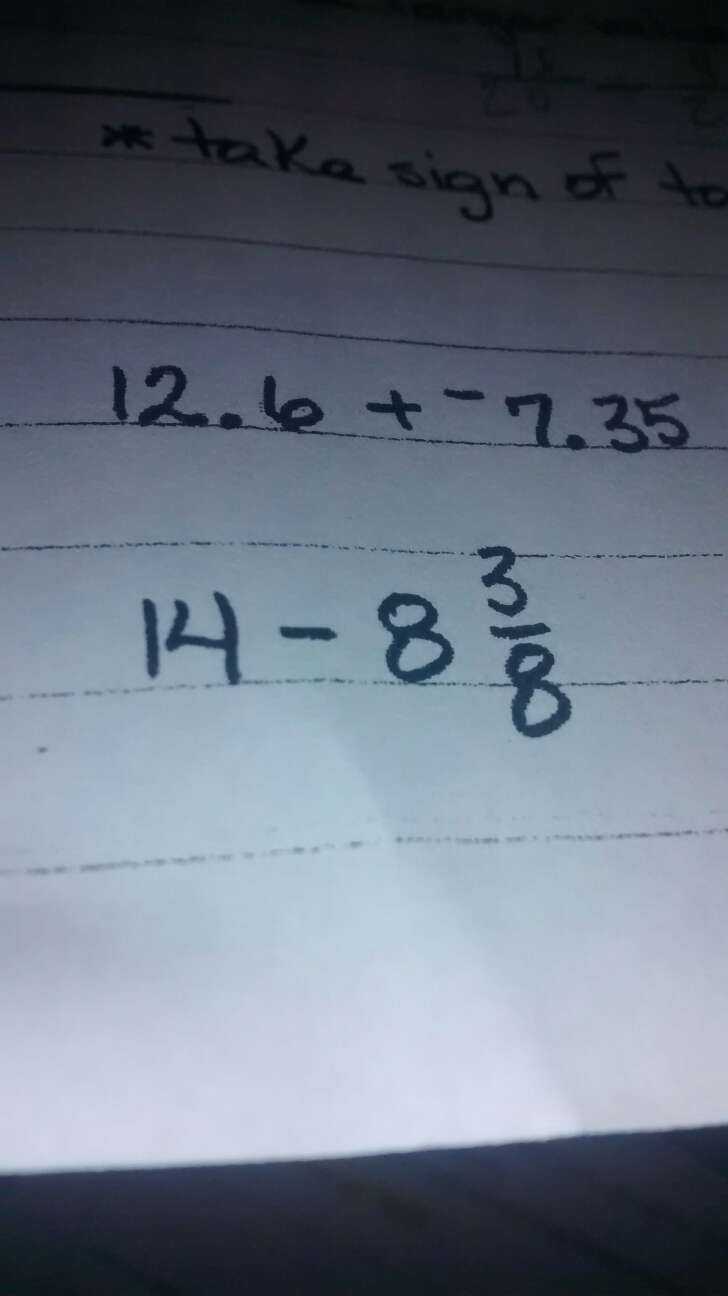 * take sign of
12.6 + -7.35
14 - 8 3/8